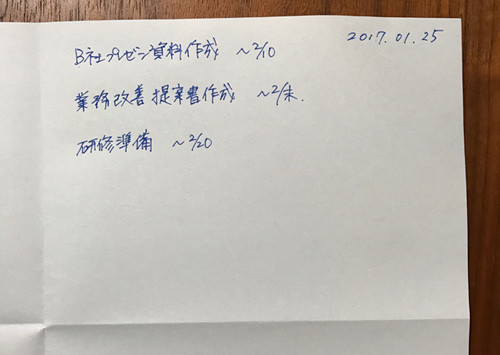 2017.01.25
B社プレゼン資料作成 ~2/10
業務改善提案書作成 ~2/末.
研修準備 ~2/20